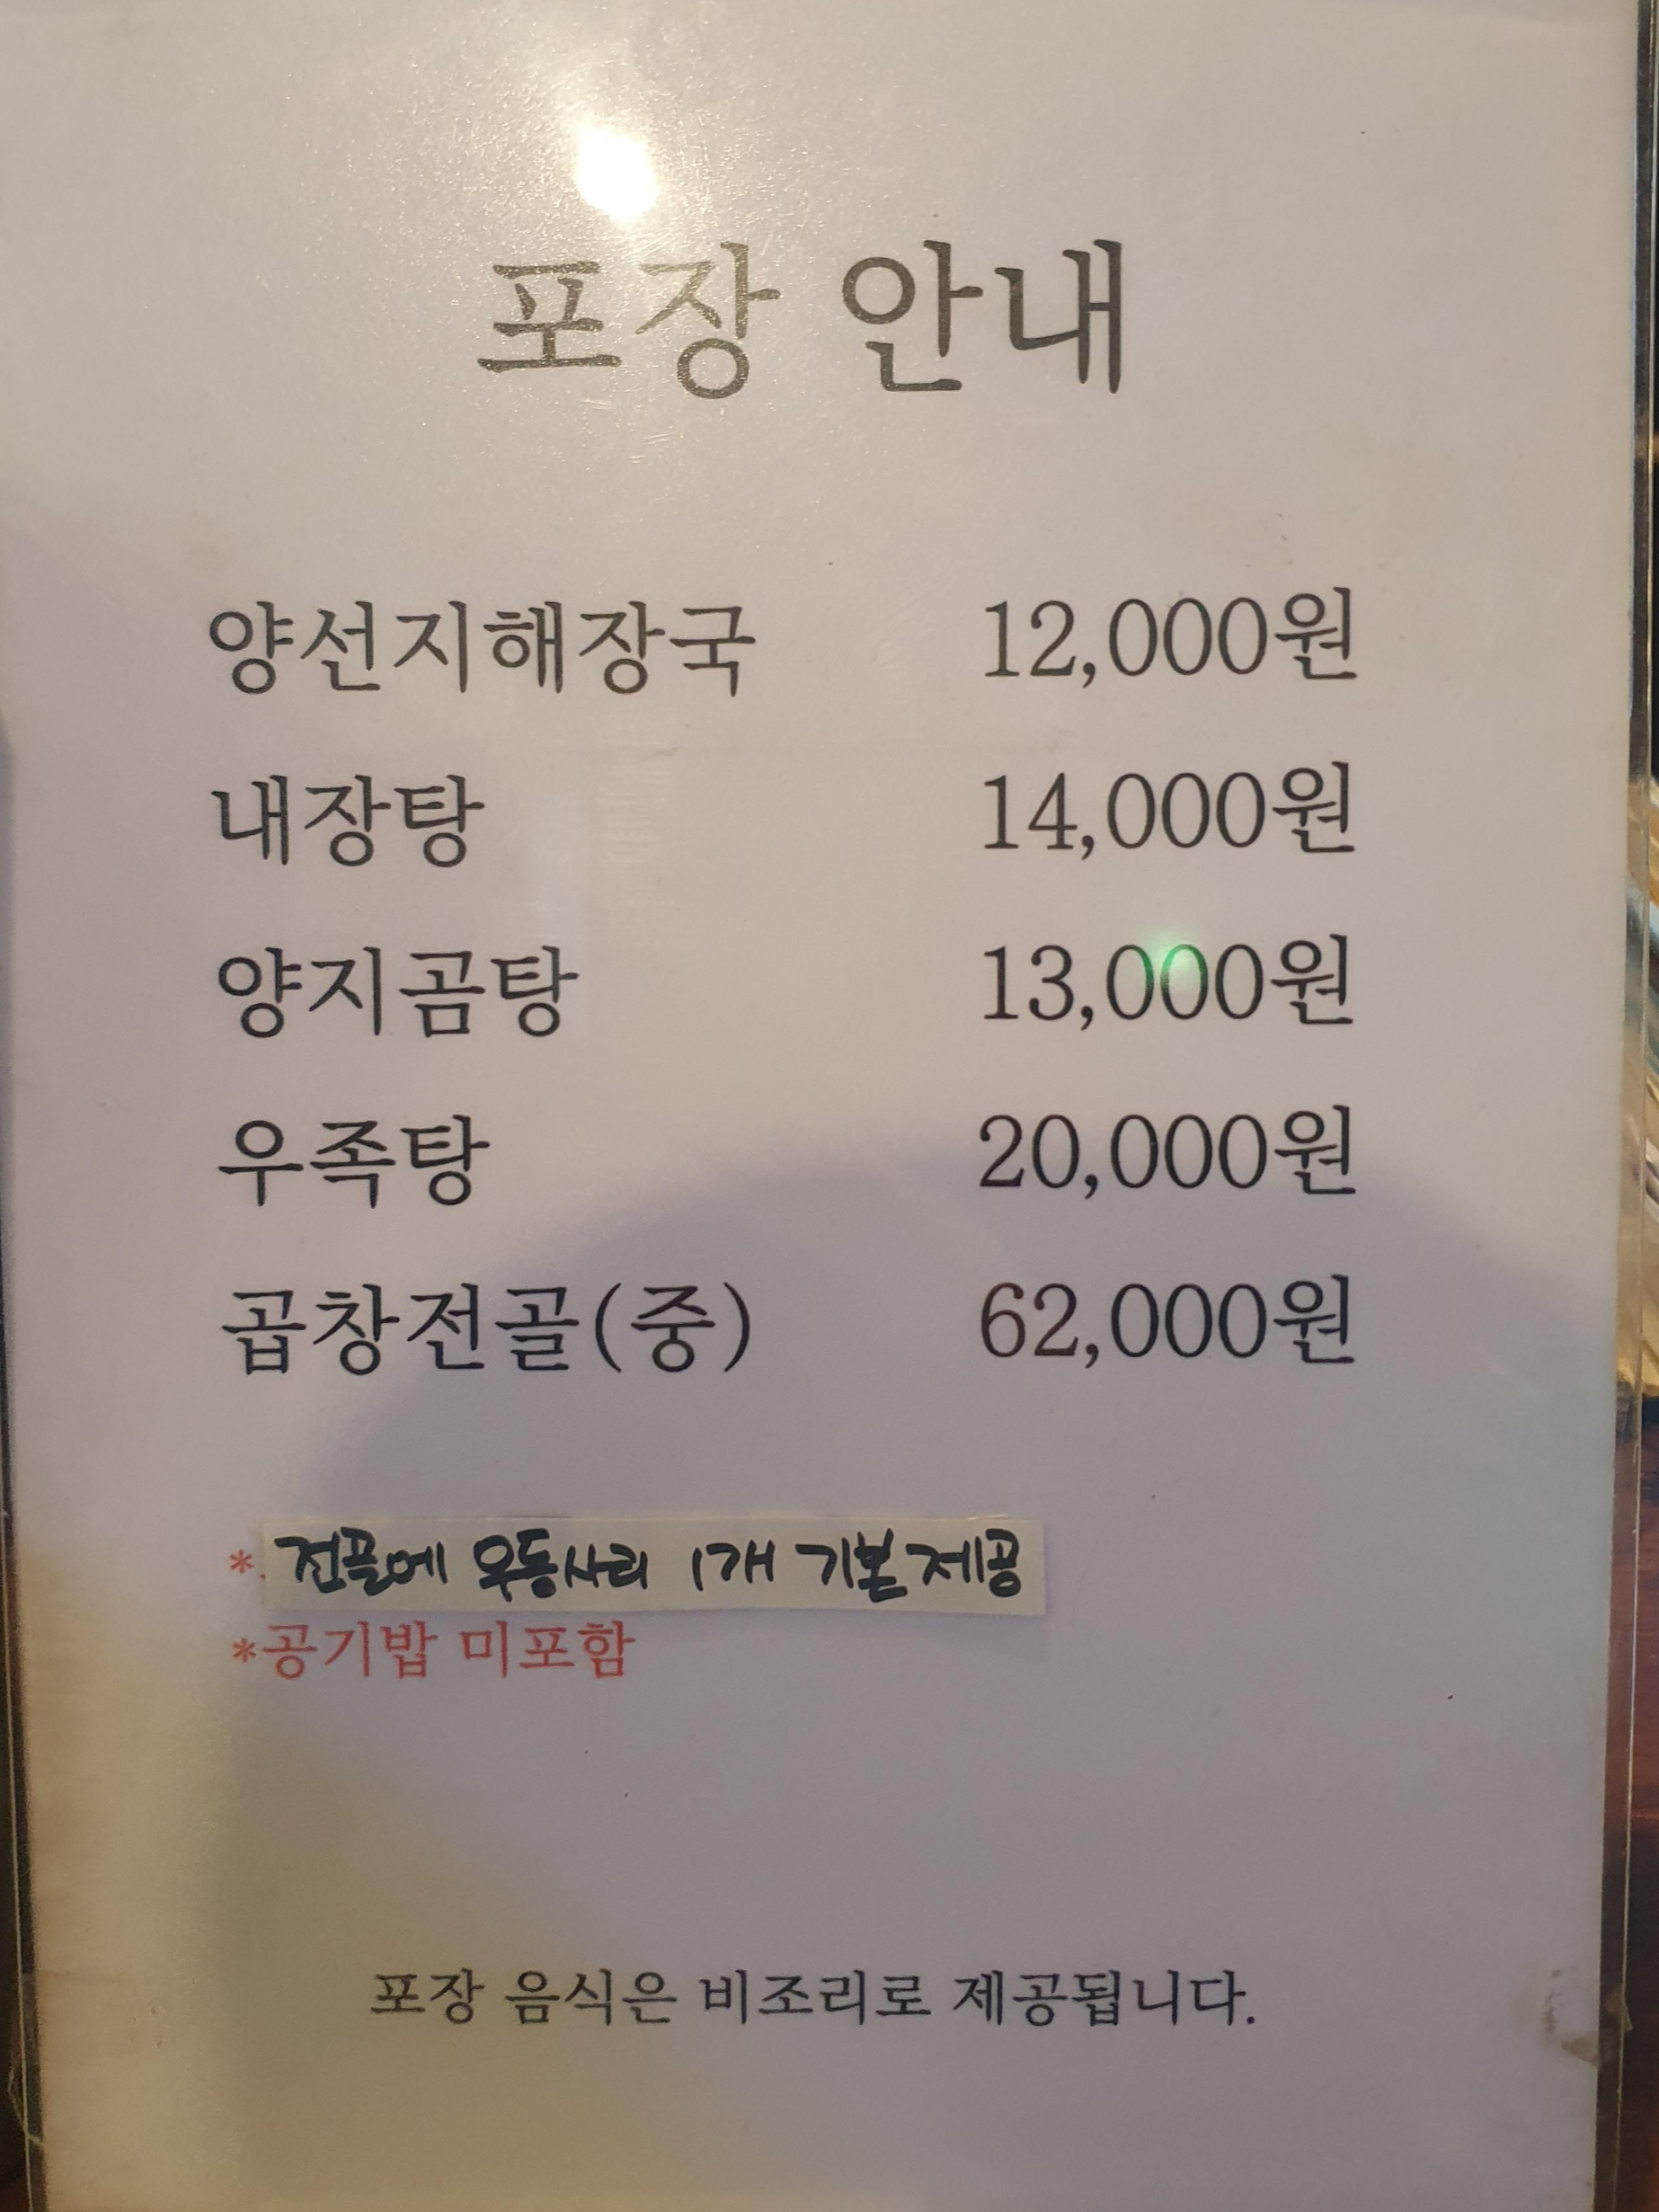 포장 안내
양선지해장국 12,000원
내장탕 14,000원
양지곰탕 13,000원
우족탕 20,000원
곱창전골(중) 62,000원
*. 전골에 우동사리 1개 기본제공
*공기밥 미포함
포장 음식은 비조리로 제공됩니다.